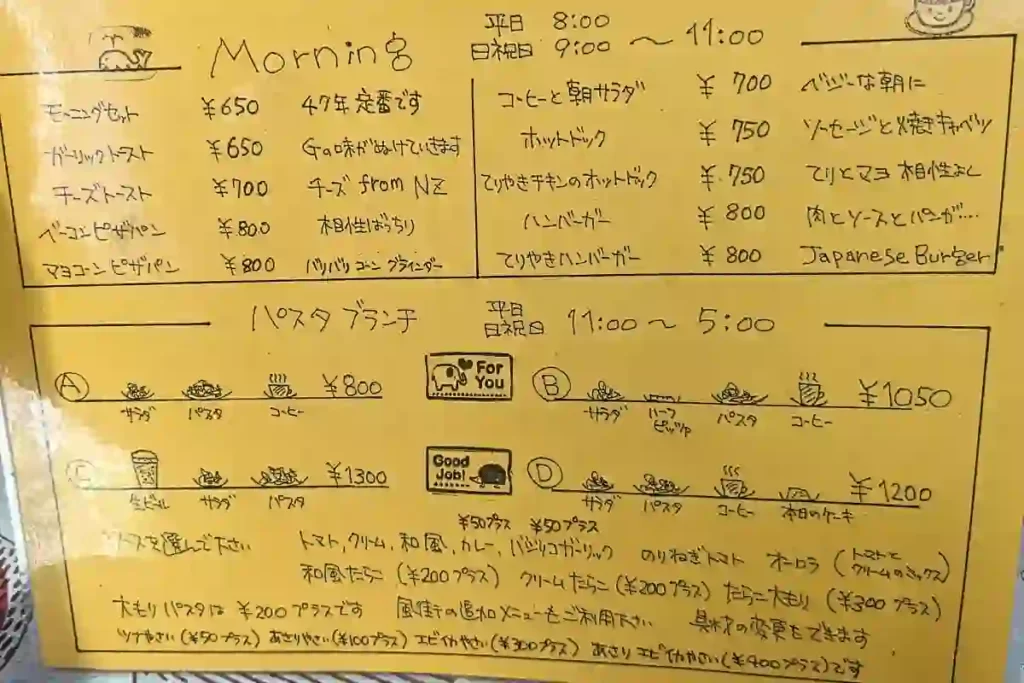 Morning
平日 8:00
日祝日 9:00 〜 11:00
モーニングセット ¥650 47年定番です
ガーリックトースト ¥650 Gaの味がぬけていきます
チーズトースト ¥700 チーズ from NZ
ベーコンピザパン ¥800 相性ばっちり
マヨコーンピザパン ¥800 バリバリコーン ブラインダー
コーヒーと朝サラダ ¥700 ベジーな朝に
ホットドック ¥750 ソーセージと焼きキャベツ
てりやきチキンのホットドック ¥750 てりとマヨ 相性よし
ハンバーガー ¥800 肉とソースとパンが…
てりやきハンバーガー ¥800 Japanese Burger
パスタ ブランチ
平日
日祝日 11:00〜 5:00
A サラダ パスタ コーヒー ¥800
For You
B サラダ ハーフピッツァ パスタ コーヒー ¥1050
C 生ビール サラダ パスタ ¥1300
Good Job!
D サラダ パスタ コーヒー 本日のケーキ ¥1200
¥50プラス ¥50プラス
ソースを選んで下さい トマト, クリーム, 和風, カレー, バジリコガーリック のりねぎトマト オーロラ (トマトとクリームのミックス)
和風たらこ (¥200プラス) クリームたらこ (¥200プラス) たらこ大もり (¥300プラス)
大もりパスタは ¥200プラスです 風街子の追加メニューもご利用下さい 具材の変更もできます
ツナやさい(¥50プラス) あさりやさい(¥100プラス) エビイカやさい(¥300プラス) あさりエビイカやさい(¥400プラス)です